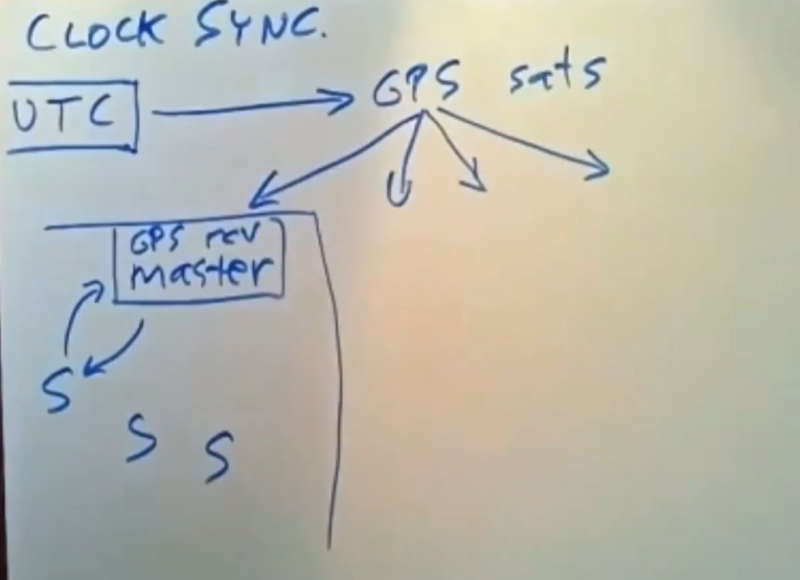 CLOCK SYNC.
UTC GPS sats
GPS rcv
master
S
S S